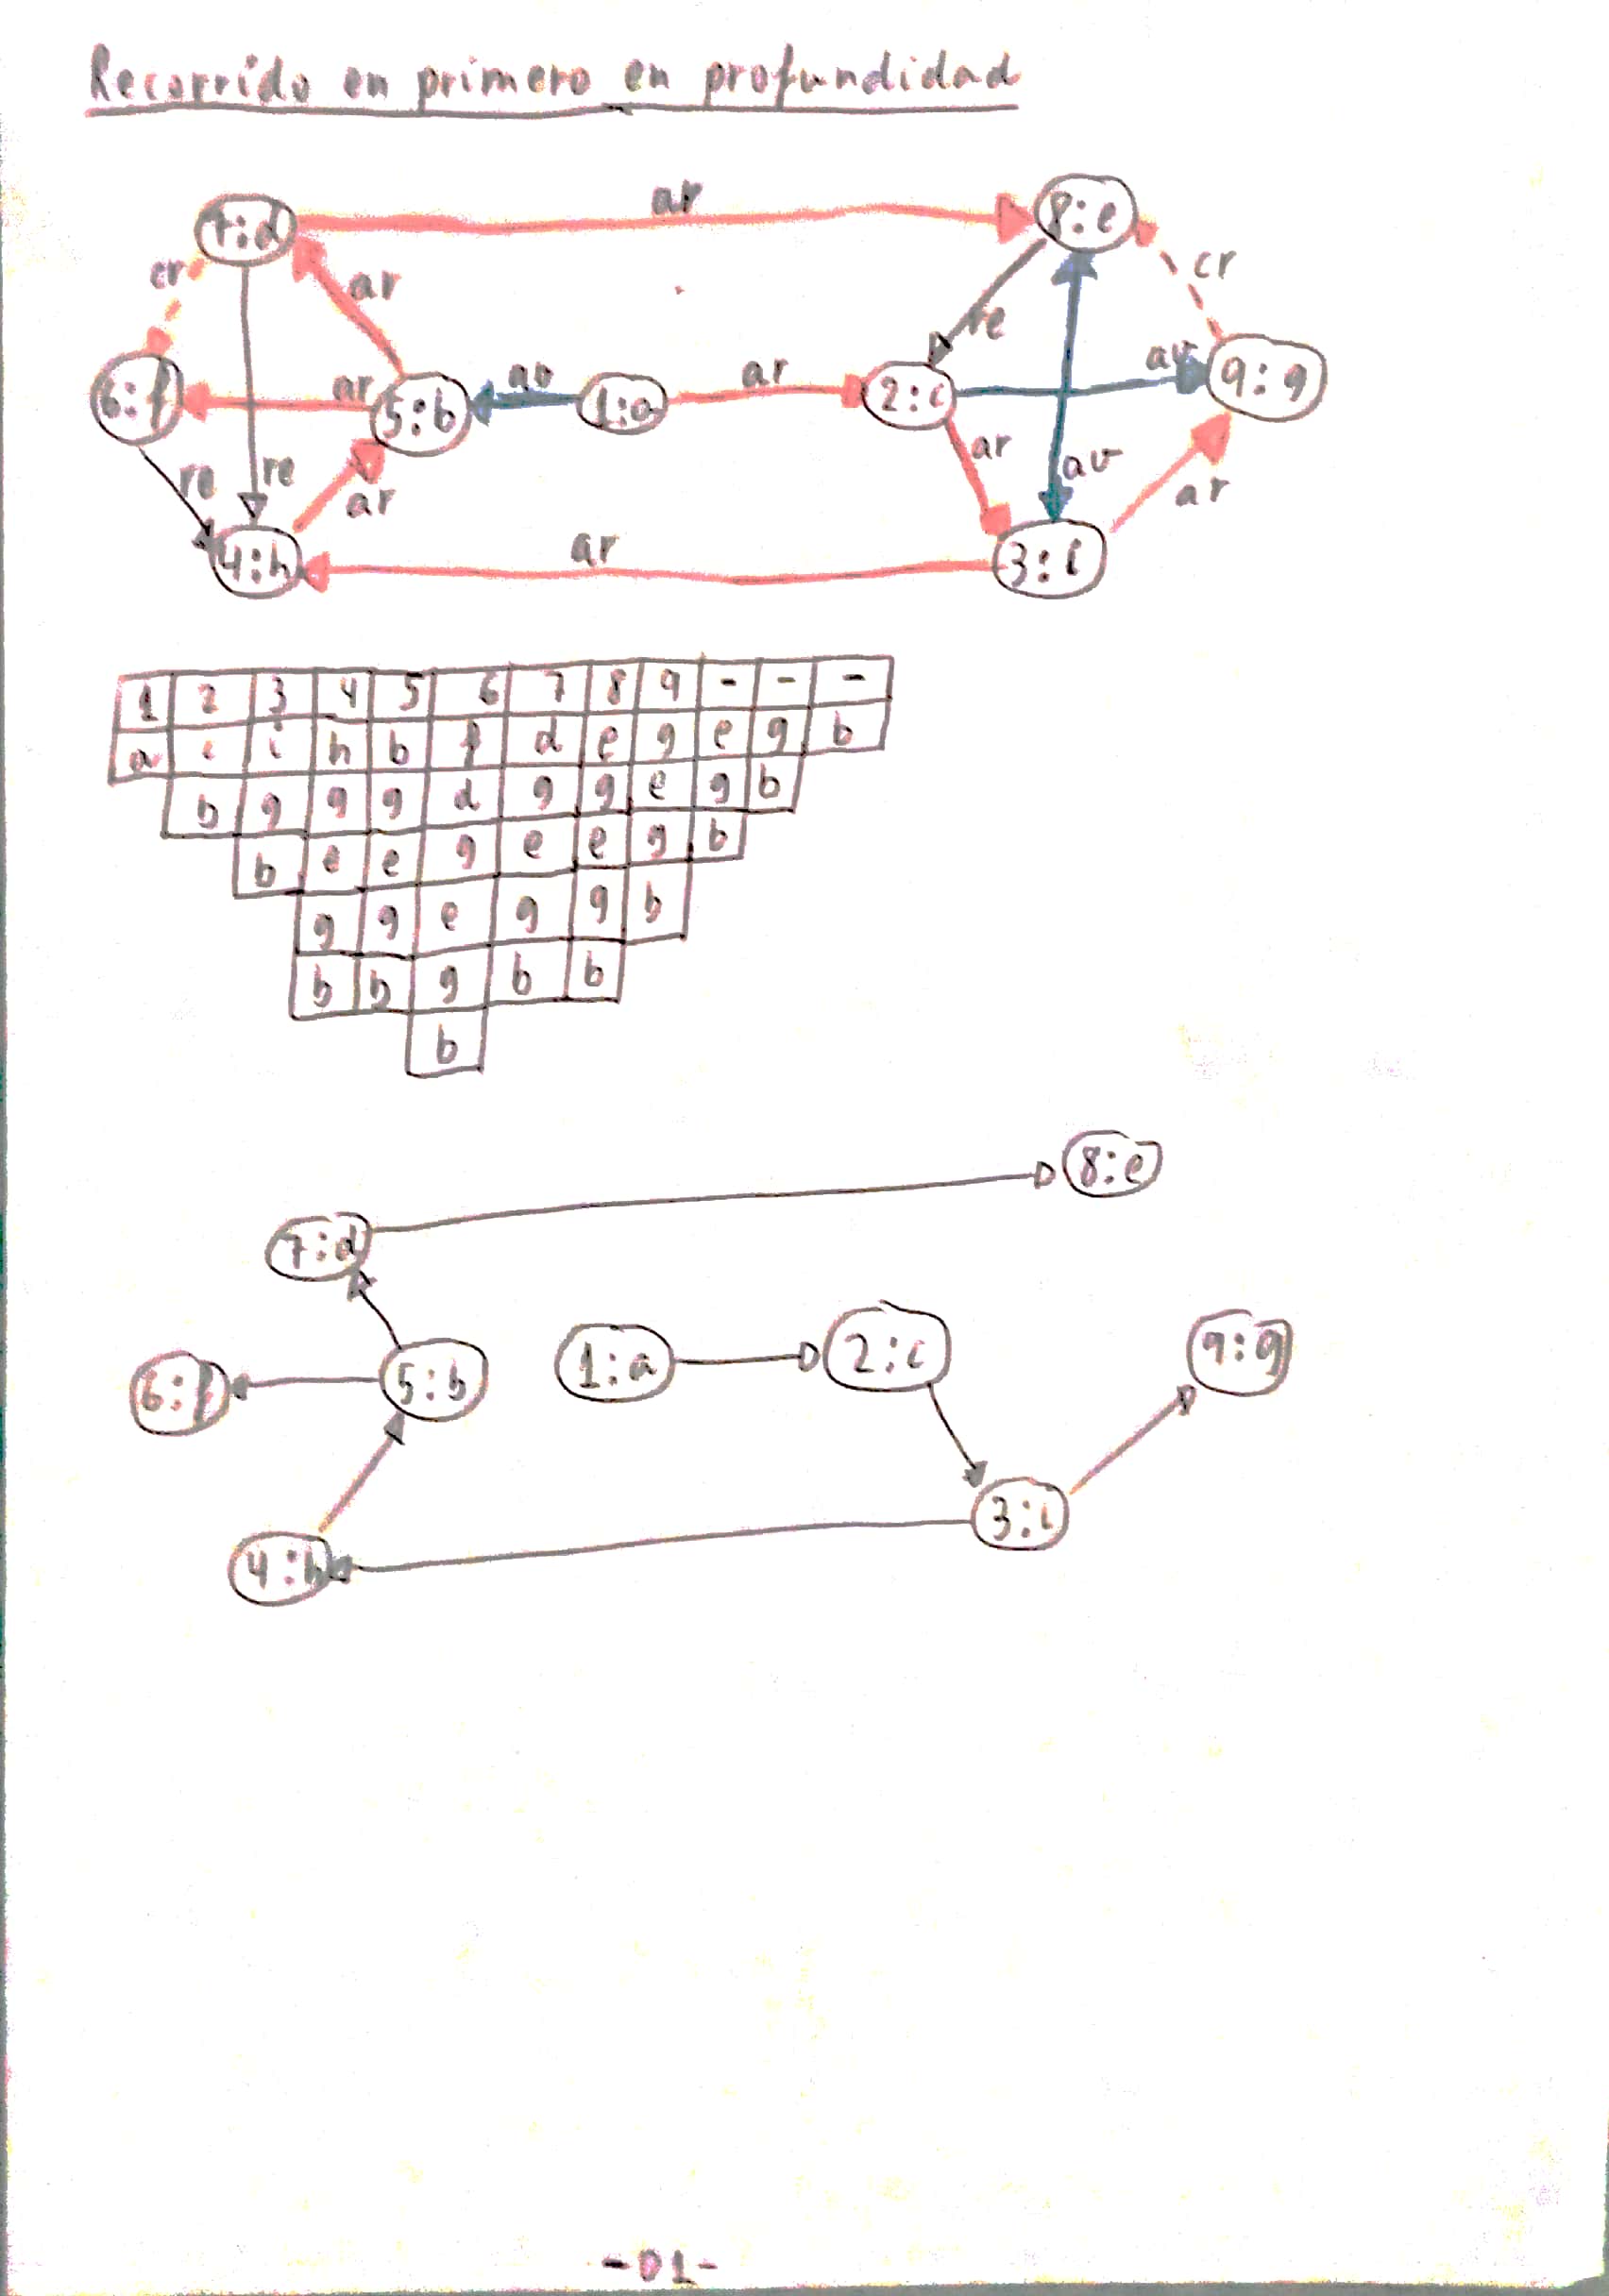 Recorrido en primero en profundidad
ar
7:d 8:e
cr ar cr
re
ar av ar av
6:f 5:b 1:a 2:c 9:g
re re ar ar av ar
ar
4:h 3:i
1 2 3 4 5 6 7 8 9 - - -
a c i h b f d e g e g b
b g g g d g g e g b
b e e g e e g b
g g e g g b
b b g b b
b
8:e
7:d
6:f 5:b 1:a 2:c 9:g
4:h 3:i
-01-